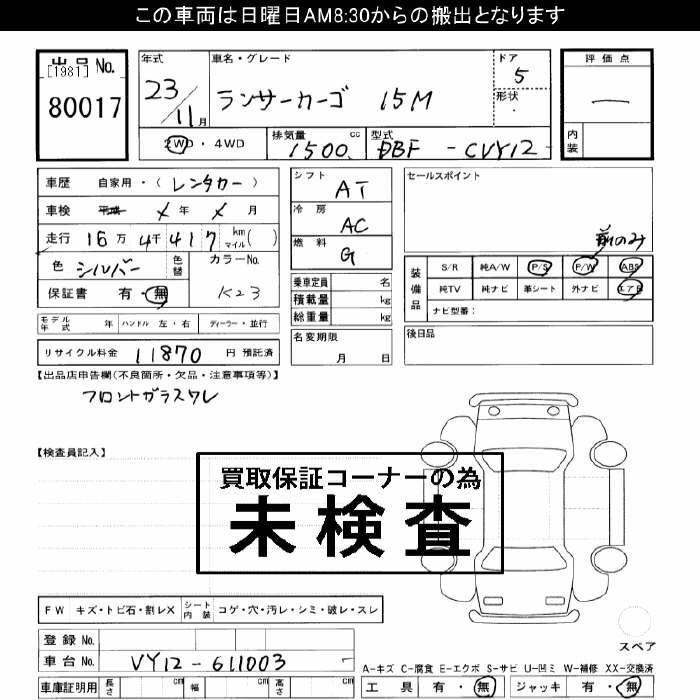 この車両は日曜日AM8:30からの搬出となります
出品No. [1981] 80017
年式 23/11月
車名・グレード ランサーカーゴ 15M
ドア 5
形状 ・
評価点 —
内装
2WD・4WD
排気量 1500 cc
型式 DBF - CVY12
車歴 自家用・(レンタカー)
車検 平成 メ年 メ月
走行 16万 4千417 km マイル( )
色 シルバー 色替
カラーNo. K23
保証書 有・無
シフト AT
冷房 AC
燃料 G
乗車定員 名
積載量 kg
総重量 kg
名変期限 月 日
セールスポイント
前のみ
装備品 S/R 純A/W P/S P/W ABS
純TV 純ナビ 革シート 外ナビ エアB
ナビ型番:
後日品
モデル年式 年 ハンドル 左・右 ディーラー・並行
リサイクル料金 11870 円 預託済
【出品店申告欄(不良箇所・欠品・注意事項等)】
フロントガラスワレ
【検査員記入】
買取保証コーナーの為
未検査
FW キズ・トビ石・割レX シート内装 コゲ・穴・汚レ・シミ・破レ・スレ
登録No.
車台No. VY12-611003
スペア
A-キズ C-腐食 E-エクボ S-サビ U-凹ミ W-補修 XX-交換済
車庫証明用 長さ cm 幅 cm 高さ cm
工具 有・無 ジャッキ 有・無